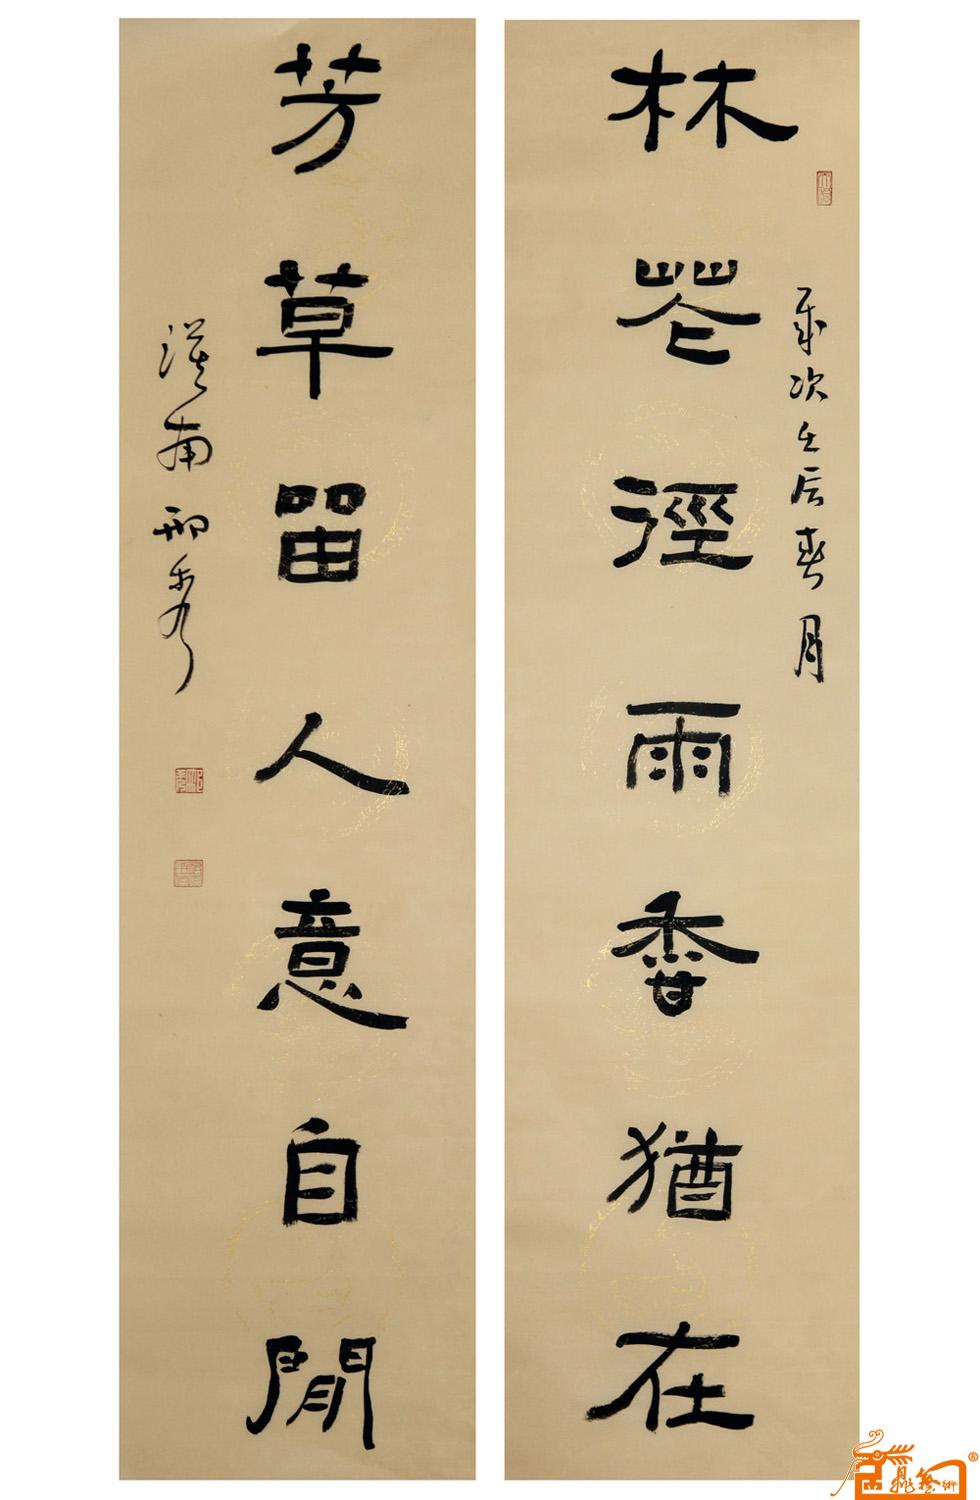 林花徑雨香猶在
歲次壬辰春月
芳草留人意自閒
漢南邢秀